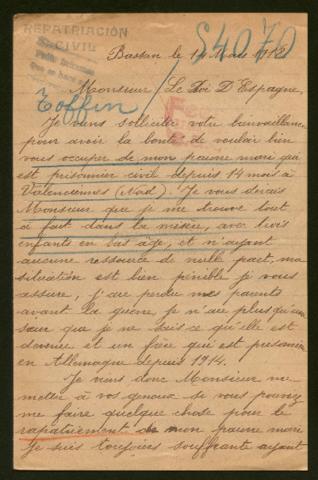 REPATRIACIÓN
CIVIL
84070
Bassan le 14 Mars 1918
Monsieur Le Roi D'Espagne,
Toffin
Je viens solliciter votre bienveillance
pour avoir la bonté de vouloir bien
vous occuper de mon pauvre mari qui
est prisonnier civil depuis 14 mois à
Valenciennes (Nord). Je vous dirais
Monsieur que je me trouve tout
à fait dans la misère, avec trois
enfants en bas âge, et n'ayant
aucune ressource de nulle part, ma
situation est bien pénible je vous
assure, j'ai perdu mes parents
avant la guerre, je n'ai plus qu'une
sœur que je ne sais ce qu'elle est
devenue et un frère qui est prisonnier
en Allemagne depuis 1914.
Je viens donc Monsieur me
mettre à vos genoux si vous pouvez
me faire quelque chose pour le
rapatriement de mon pauvre mari
Je suis toujours souffrante ayant